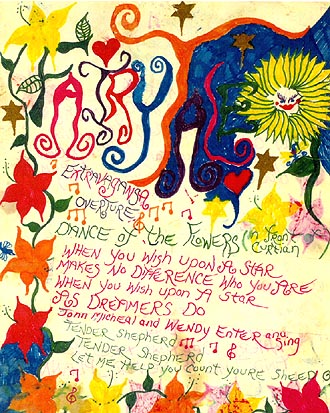 FAIRY TALE
EXTRAVAGANSA
OVERTURE
DANCE of THE FLOWERS (in fron
Curtian
WHEN YOU WISH UPON A STAR
MAKES NO DIFFERENCE WHO YOU ARE
WHEN YOU WISH UPON A STAR
AS DREAMERS DO
John Micheal and WENDY ENTER and sing
TENDER SHEPHERD
TENDER SHEPHERD
LET ME HELP YOU COUNT YOU'RE SHEEP